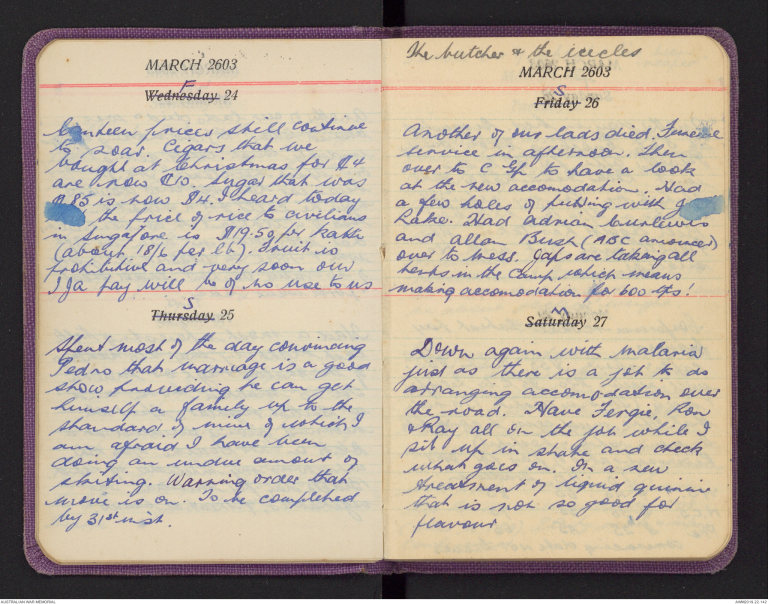 MARCH 2603
F
Wednesday 24
Canteen prices still continue
to soar. Cigars that we
bought at Christmas for $4
are now $10. Sugar that was
$.85 is now $4. I heard today
the price of rice to civilians
in Singapore is $19.50 per katti
(about 18/6 per lb). Fruit is
prohibitive and very soon our
IJA pay will be of no use to us
S
Thursday 25
Spent most of the day convincing
Pedro that marriage is a good
show providing he can get
himself a family up to the
standard of mine of which I
am afraid I have been
doing an undue amount of
skiting. Warning order that
move is on. To be completed
by 31st inst.
The butcher & the icicles
MARCH 2603
S
Friday 26
Another of our lads died. Funeral
service in afternoon. Then
over to C to have a look
at the new accomodation. Had
a few holes of putting with
Kahe. Had Adrian Curlewis
and Allan Bush (ABC announcer)
over to mess. Japs are taking all
herbs in the Camp which means
making accomodation for 600 !
M
Saturday 27
Down again with malaria
just as there is a job to do
arranging accomodation over
the road. Have Fergie, Ron
& Kay all on the job while I
sit up in state and check
what goes on. On a new
treatment of liquid quinine
that is not so good for
flavour
AUSTRALIAN WAR MEMORIAL